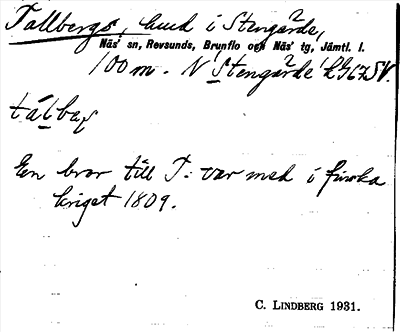 Tallbergs, hmd i Stengärde,
Näs' sn, Revsunds, Brunflo och Näs' tg, Jämtl. l.
100 m. N Stengärde
tálbaʃ
En bror till T. var med i finska
kriget 1809.
C. LINDBERG 1931.